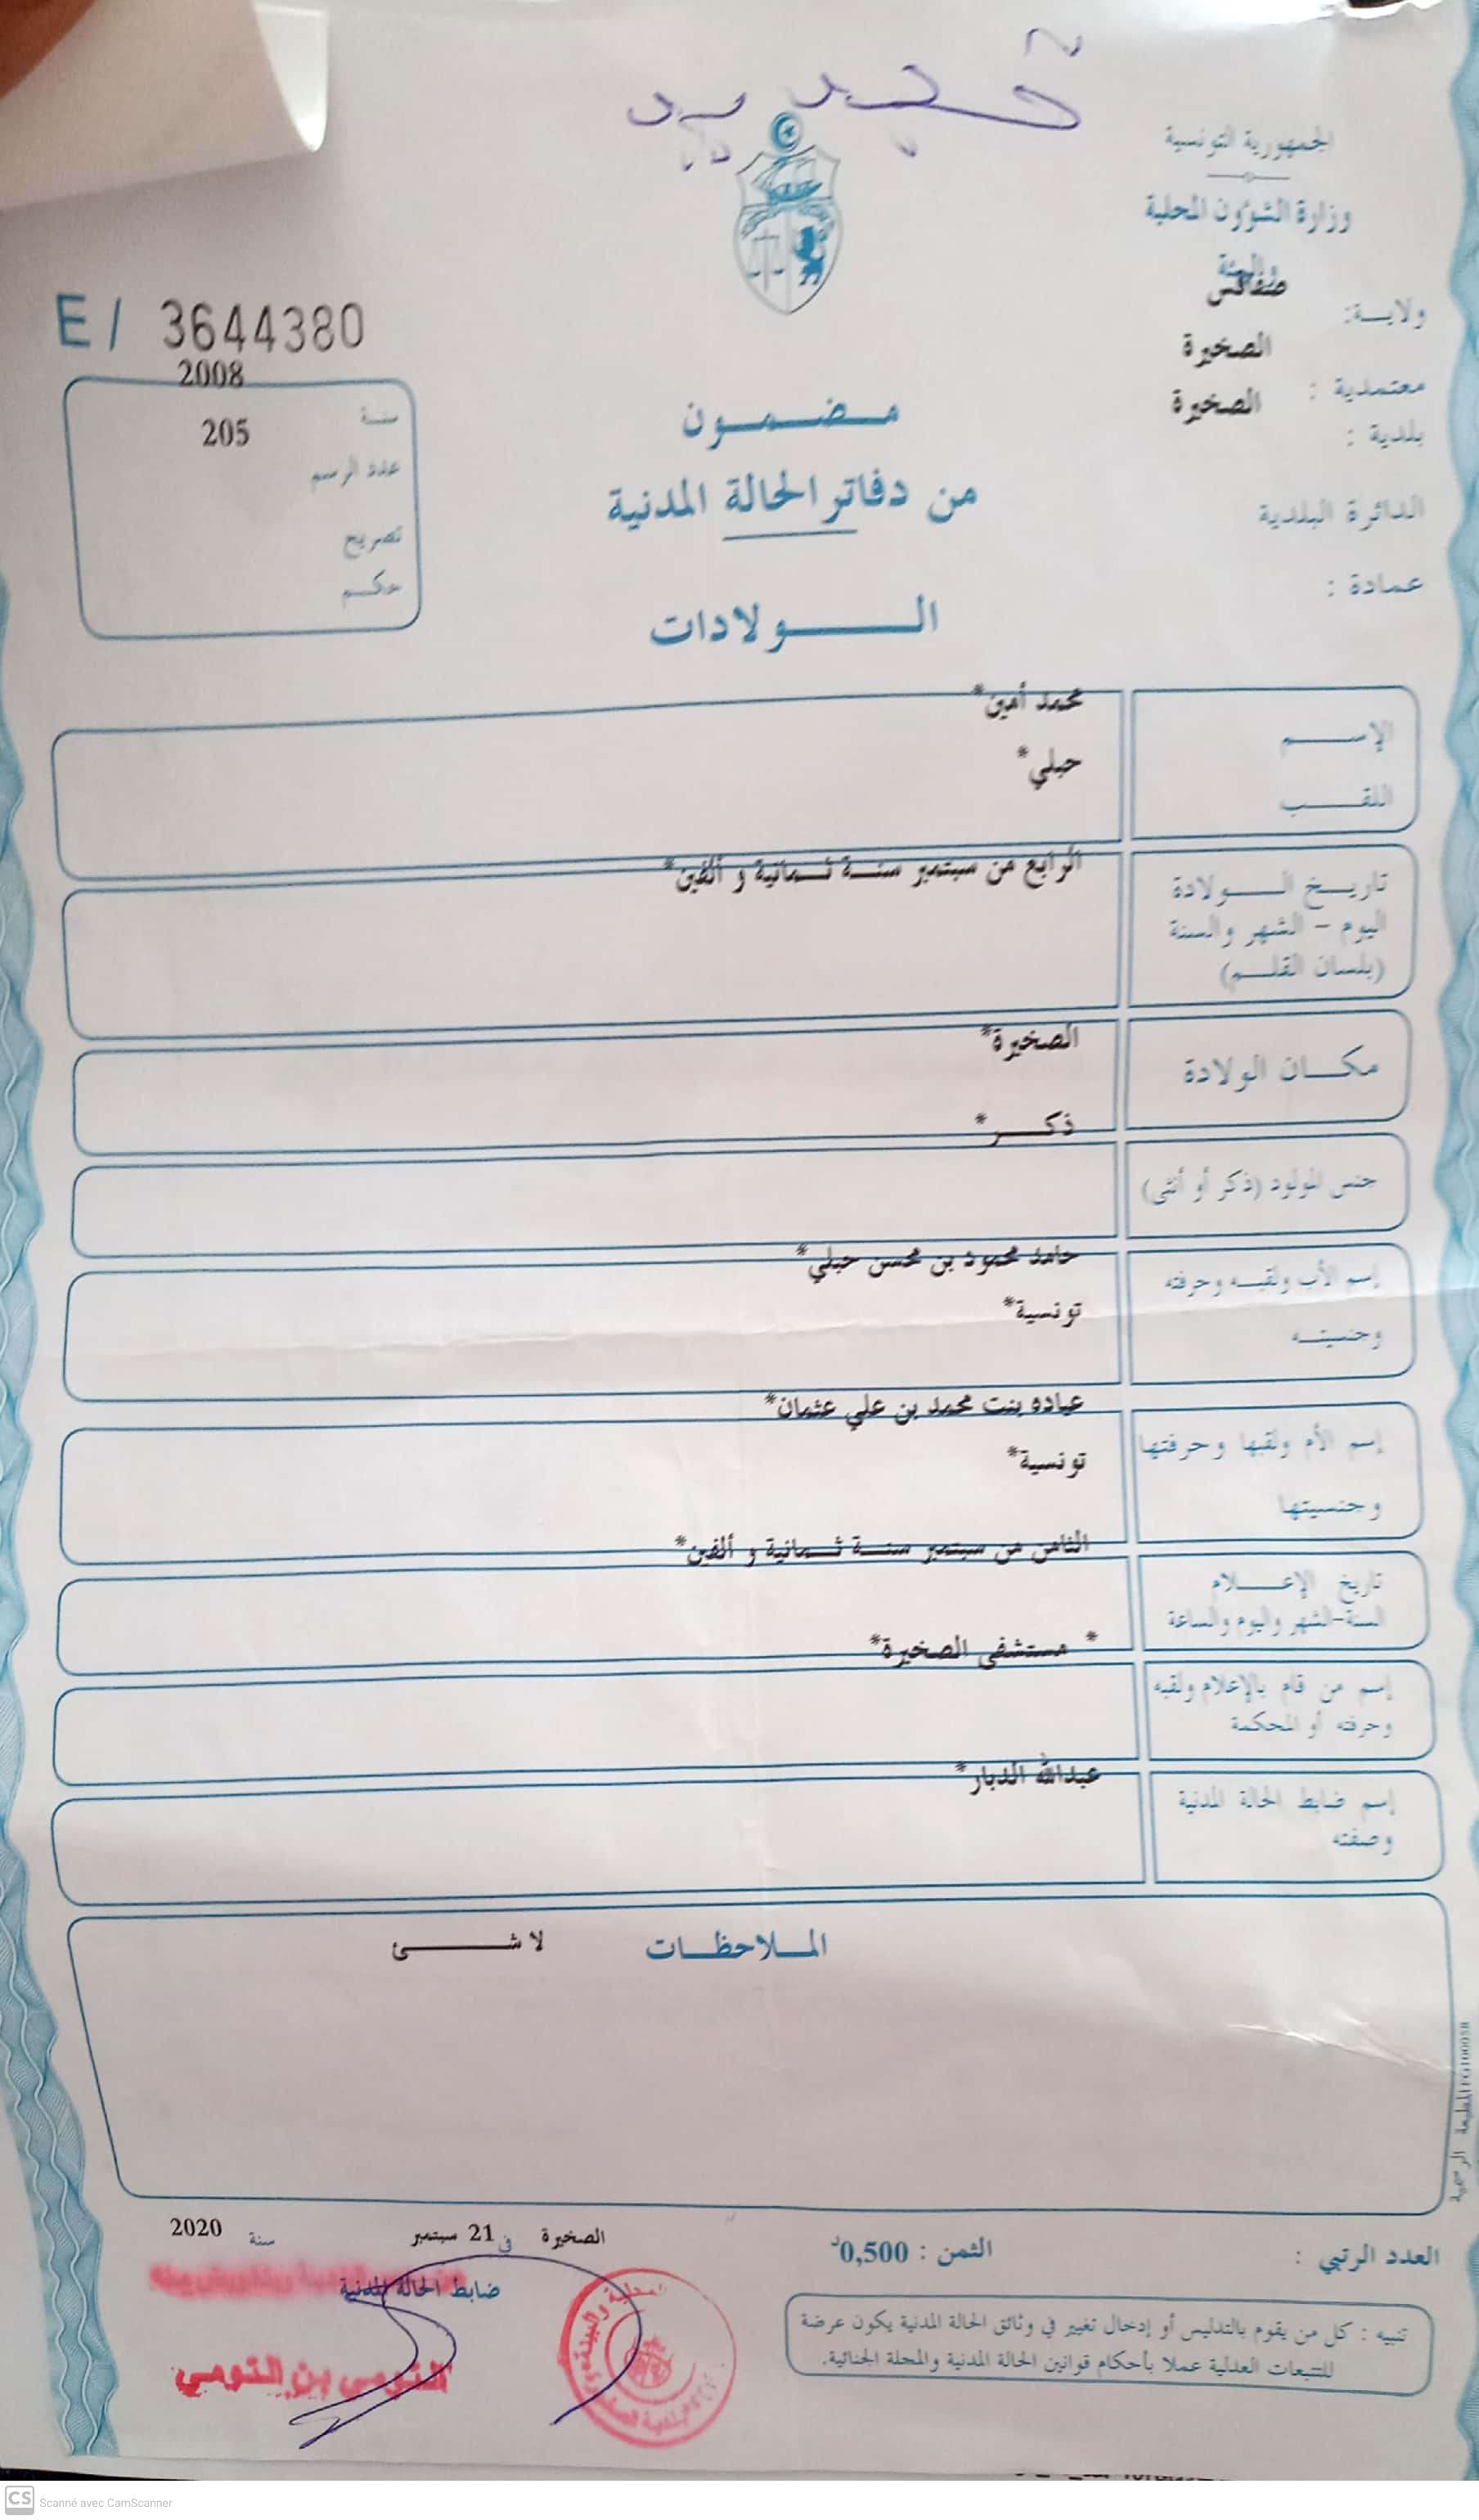 الجمهورية التونسية
وزارة الشؤون المحلية
والبيئة
ولاية: صفاقس
معتمدية : الصخيرة
بلدية : الصخيرة
الدائرة البلدية
عمادة :
E/ 3644380
سنة 2008
عدد الرسم 205
تصريح
حكم
مضمون
من دفاتر الحالة المدنية
الولادات
الإسم محمد أمين*
اللقب حبلي*
تاريخ الولادة الرابع من سبتمبر سنة ثمانية و ألفين*
اليوم - الشهر والسنة
(بلسان القلم)
مكان الولادة الصخيرة*
جنس المولود (ذكر أو أنثى) ذكر*
إسم الأب ولقبه وحرفته حامد محمود بن محسن حبلي*
وجنسيته تونسية*
إسم الأم ولقبها وحرفتها عياده بنت محمد بن علي عثمان*
وجنسيتها تونسية*
تاريخ الإعلام من سبتمبر سنة ثمانية و ألفين*
السنة-الشهر واليوم والساعة
إسم من قام بالإعلام ولقبه * مستشفى الصخيرة*
وحرفته أو المحكمة
إسم ضابط الحالة المدنية عبدالله الدبار*
وصفته
الملاحظات لا شئ
المطبعة الرسمية
الصخيرة في 21 سبتمبر سنة 2020
ضابط الحالة المدنية
التومي بن التومي
العدد الرتبي :
الثمن : 0,500د
تنبيه : كل من يقوم بالتدليس أو إدخال تغيير في وثائق الحالة المدنية يكون عرضة
للتتبعات العدلية عملا بأحكام قوانين الحالة المدنية والمجلة الجنائية.
CS Scanné avec CamScanner